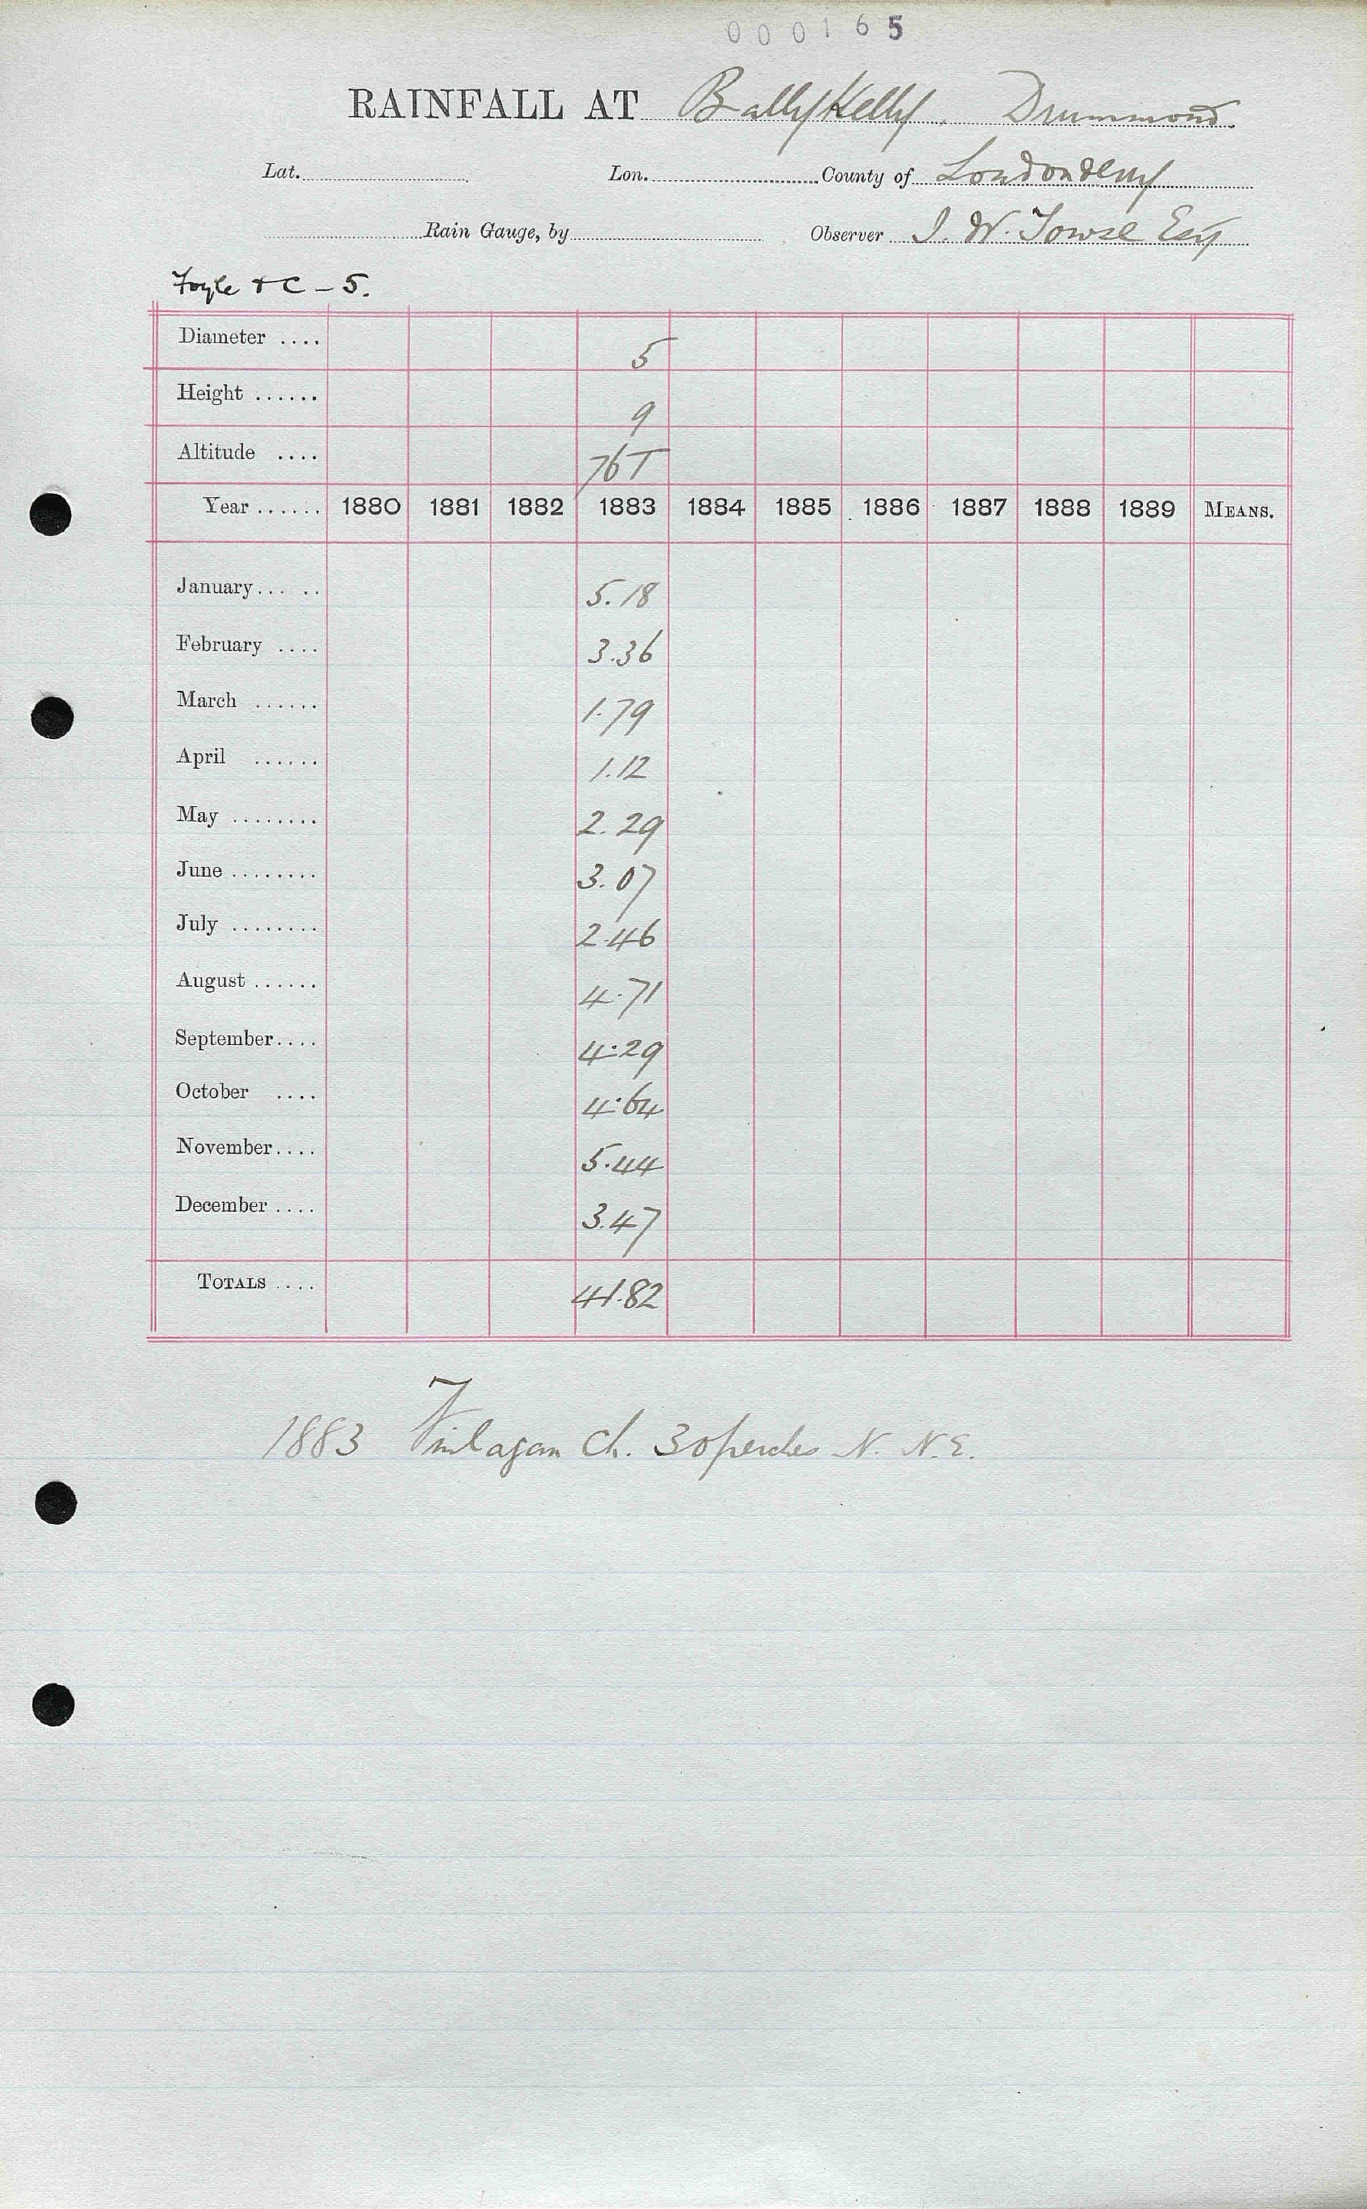 000165
RAINFALL AT BallyKelly. Drummond.
Lat. Lon. County of Londonderry
Rain Gauge, by Observer J. W. Towse Esq
Foyle & C - 5.
Diameter .... 5
Height ...... 9
Altitude .... 76T
Year ...... 1880 1881 1882 1883 1884 1885 1886 1887 1888 1889 MEANS.
January... .. 5.18
February .... 3.36
March ...... 1.79
April ...... 1.12
May ........ 2.29
June ........ 3.07
July ........ 2.46
August ...... 4.71
September.... 4.29
October .... 4.64
November.... 5.44
December .... 3.47
TOTALS .... 41.82
1883 Finlagan Ch. 30 perches N. N.E.